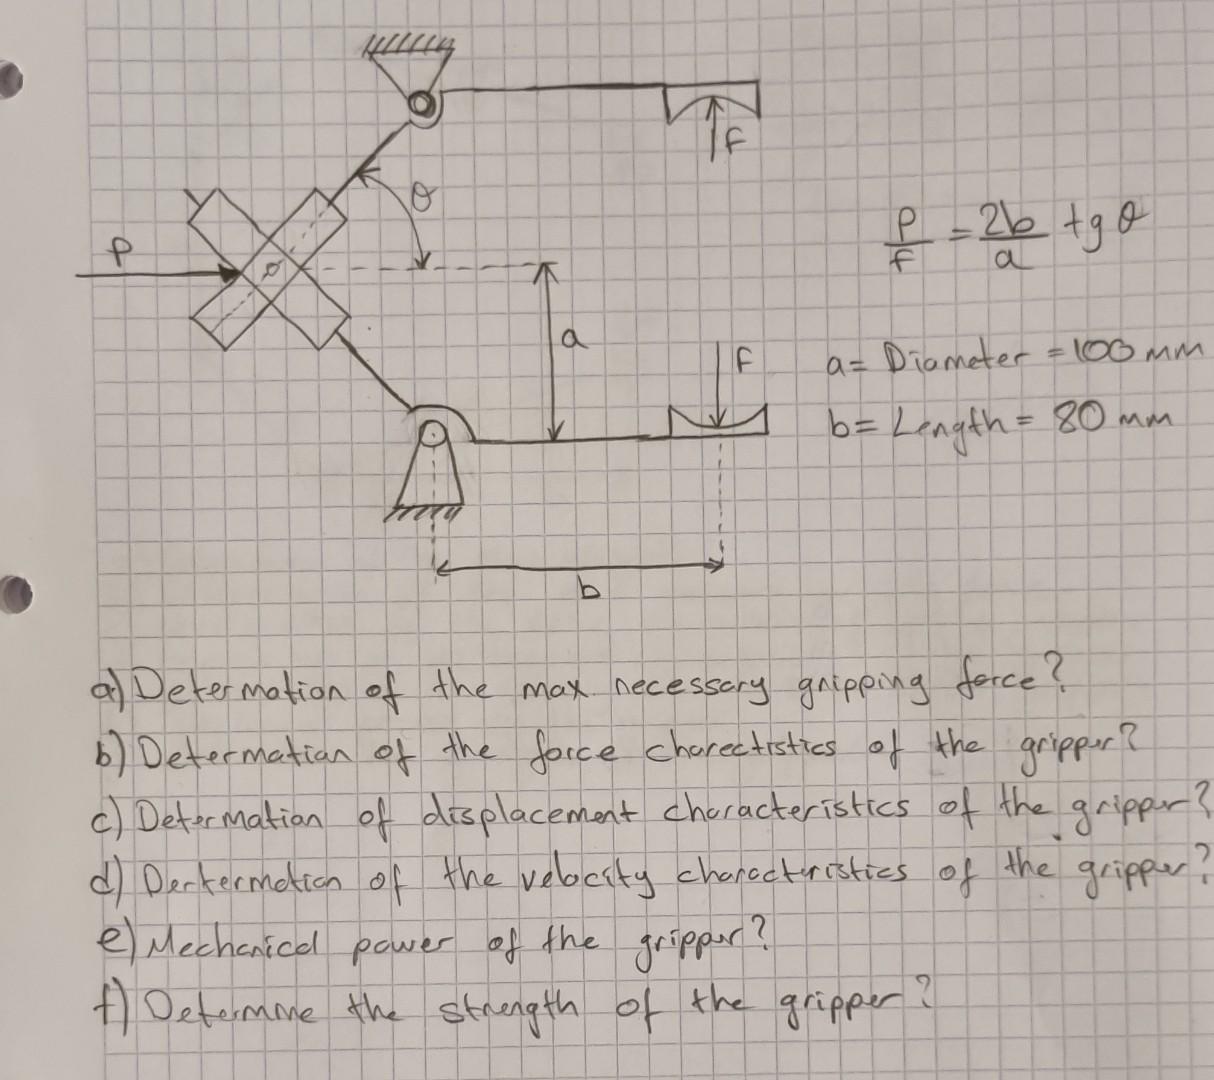 F
θ
P
P/F = 2b/a tg θ
a
F
a = Diameter = 100 mm
b = Length = 80 mm
b
a) Determation of the max necessary gripping force?
b) Determatian of the force charectistics of the gripper?
c) Determation of displacement characteristics of the gripper?
d) Dertermotion of the velocity charocteristics of the gripper?
e) Mechanicol power of the gripper?
f) Determine the strength of the gripper?